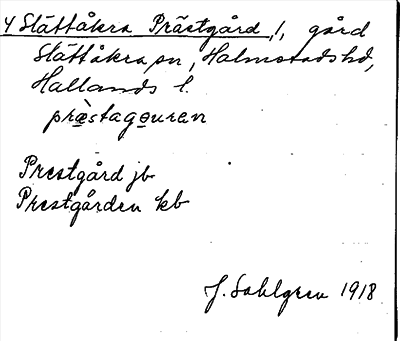 Y Slättåkra Prästgård /, gård
Slättåkra sn, Halmstads hd,
Hallands l.
præ̀stagọuren
Prestgård jb
Prestgården kb
J. Sahlgren 1918